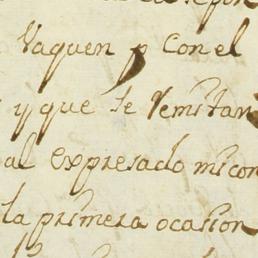 Vaquen p Con el
y que se Remitan
al expresado mi con
la primera ocasion